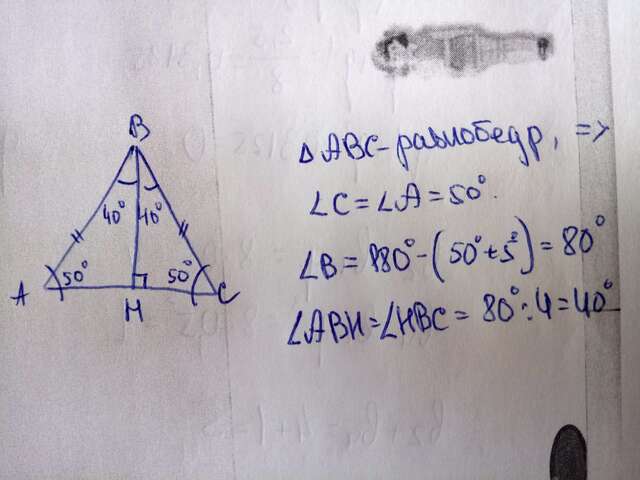 B
40° 40°
50° 50°
A H C
△ABC-равнобедр, =>
∠C=∠A=50°.
∠B=180°-(50°+5°)=80°
∠ABH=∠HBC=80°:4=40°